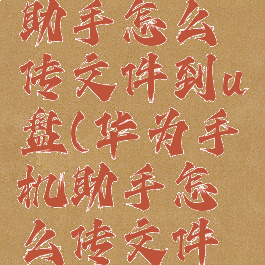 助手怎么
传文件到u
盘(华为手
机助手怎
么传文件